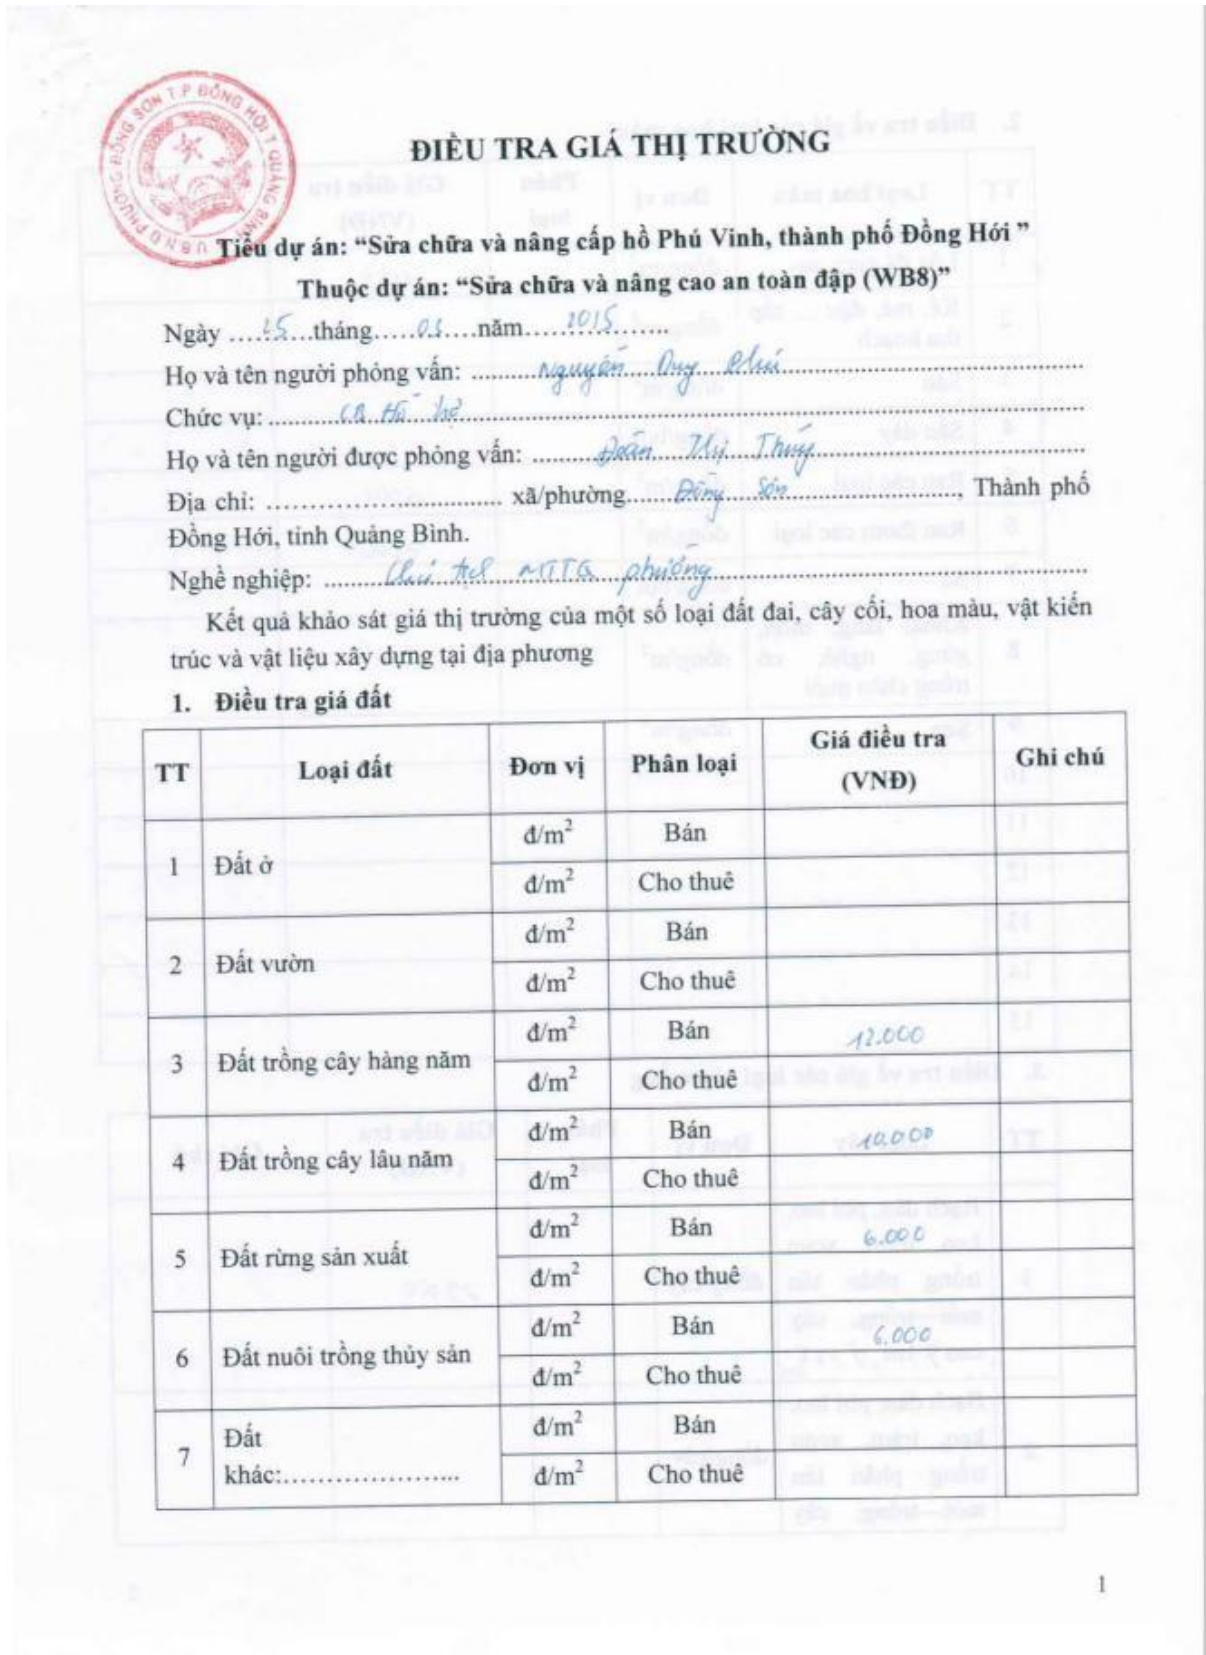 U.B.N.D PHƯỜNG ĐỒNG SƠN T.P ĐỒNG HỚI T QUẢNG BÌNH
ĐIỀU TRA GIÁ THỊ TRƯỜNG
Tiểu dự án: “Sửa chữa và nâng cấp hồ Phú Vinh, thành phố Đồng Hới ”
Thuộc dự án: “Sửa chữa và nâng cao an toàn đập (WB8)”
Ngày .....25....tháng.....03....năm.....2015.....
Họ và tên người phỏng vấn: ........Nguyễn Duy ........
Chức vụ: ........CB Hỗ trợ........
Họ và tên người được phỏng vấn: ........Đoàn Thị Thúy........
Địa chỉ: ........................ xã/phường......Đồng Sơn......, Thành phố
Đồng Hới, tỉnh Quảng Bình.
Nghề nghiệp: ........Chủ tịch MTTQ phường........
Kết quả khảo sát giá thị trường của một số loại đất đai, cây cối, hoa màu, vật kiến
trúc và vật liệu xây dựng tại địa phương
1. Điều tra giá đất
TT Loại đất Đơn vị Phân loại Giá điều tra (VNĐ) Ghi chú
1 Đất ở đ/m² Bán
đ/m² Cho thuê
2 Đất vườn đ/m² Bán
đ/m² Cho thuê
3 Đất trồng cây hàng năm đ/m² Bán 12.000
đ/m² Cho thuê
4 Đất trồng cây lâu năm đ/m² Bán 10.000
đ/m² Cho thuê
5 Đất rừng sản xuất đ/m² Bán 6.000
đ/m² Cho thuê
6 Đất nuôi trồng thủy sản đ/m² Bán 6.000
đ/m² Cho thuê
7 Đất khác:.................... đ/m² Bán
đ/m² Cho thuê
1